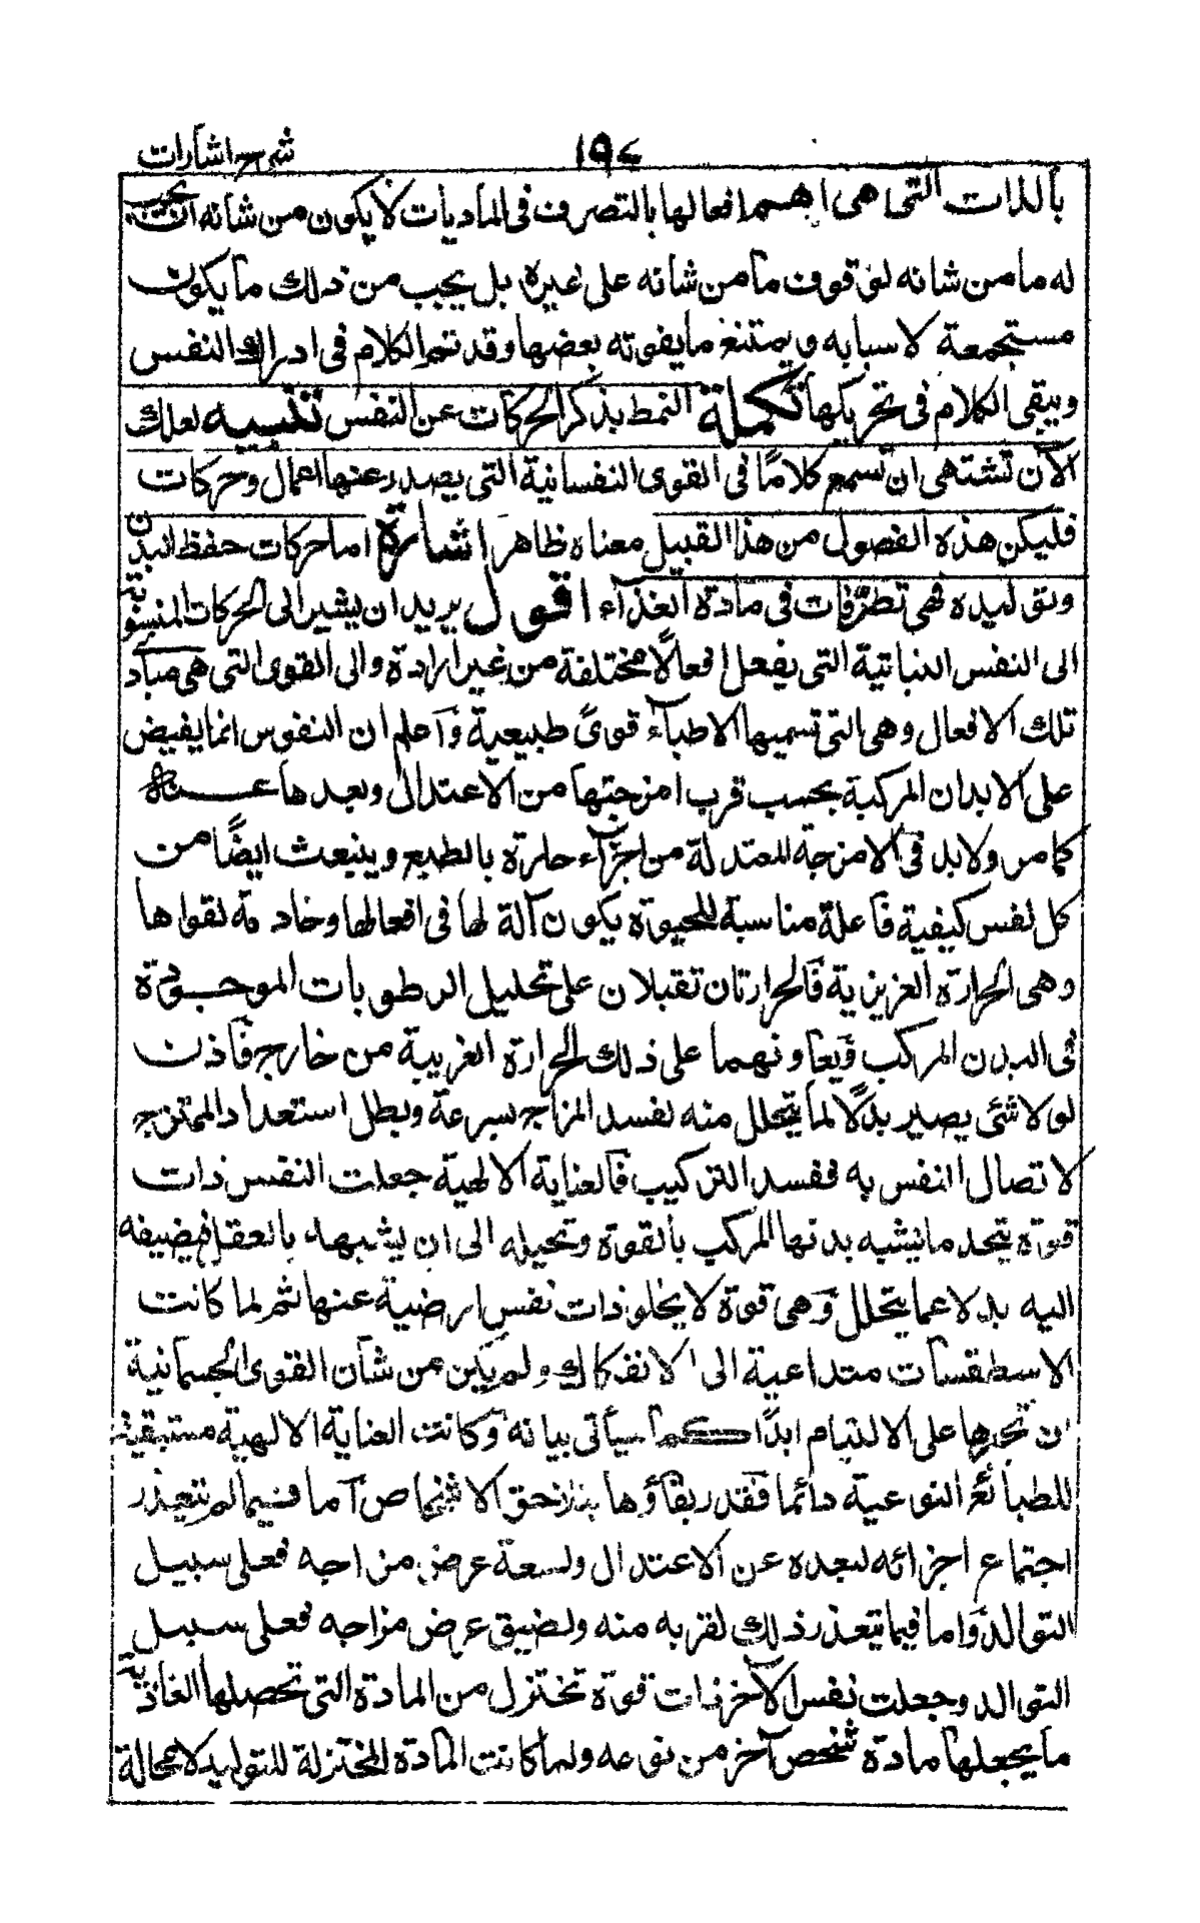 شرح اشارات
١٩٤
بالذات التى هى افعالها بالتصرف فى الماديات لا يكون من شانه ان يجب
له ما من شانه لوقوف ما من شانه على غيره بل يجب من ذلك ما يكون
مستجمعة لاسبابه ويمتنع ما يفوته بعضها وقد تم الكلام فى ادراك النفس
ويبقى الكلام فى تحريكها تكملة النمط بذكر الحركات عن النفس تنبيه لعلك
الآن تشتهى ان تسمع كلامًا فى القوى النفسانية التى يصدر عنها اعمال وحركات
فليكن هذه الفصول من هذا القبيل معناه ظاهر اشارة اما حركات حفظ البدن
وتوليده فهى تصرّفات فى مادة الغذآء اقول يريد ان يشير الى الحركات المنسوبة
الى النفس النباتية التى يفعل افعالًا مختلفة من غير ارادة والى القوى التى هى مباد
تلك الافعال وهى التى تسميها الاطبآء قوىً طبيعية وآعلم ان النفوس انما يفيض
على الابدان المركبة بحسب قرب امزجتها من الاعتدال وبعدها عنه
كما مر ولابد فى الامزجة المعتدلة من اجزآء حارة بالطبع وينبعث ايضًا من
كل نفس كيفية فاعلة مناسبة للحيوة يكون آلة لها فى افعالها وخادمة لقواها
وهى الحرارة الغريزية فالحرارتان تقبلان على تحليل الرطوبات الموجودة
فى البدن المركب ويعاونهما على ذلك الحرارة الغريبة من خارج فاذن
لولا شئ يصير بدلًا لما يتحلل منه لفسد المزاج بسرعة وبطل استعداد الممتزج
لاتصال النفس به ففسد التركيب فالعناية الالهية جعلت النفس ذات
قوة يتحد ما يشبه بدنها المركب بالقوة وتحيله الى ان يشبهه بالعقل فيضيفه
اليه بدلا عما يتحلل وهى قوة لا يخلو ذات نفس ارضية عنها ثم لما كانت
الاسطقسات متداعية الى الانفكاك ولم يكن من شأن القوى الجسمانية
ان تجبرها على الالتيام ابدًا كما سيأتى بيانه وكانت العناية الالهية مستبقية
للطبائع النوعية دائما فقدر بقآؤها بتلاحق الاشخاص آما فيما لم يتعذر
اجتماع اجزائه لبعده عن الاعتدال ولسعة عرض مزاجه فعلى سبيل
التوالد وآما فيما يتعذر ذلك لقربه منه ولضيق عرض مزاجه فعلى سبيل
التوالد وجعلت نفس الآخر ذات قوة تختزل من المادة التى تحصلها الغاذية
ما يجعلها مادة شخص آخر من نوعه ولما كانت المادة المختزلة للتوليد لا محالة